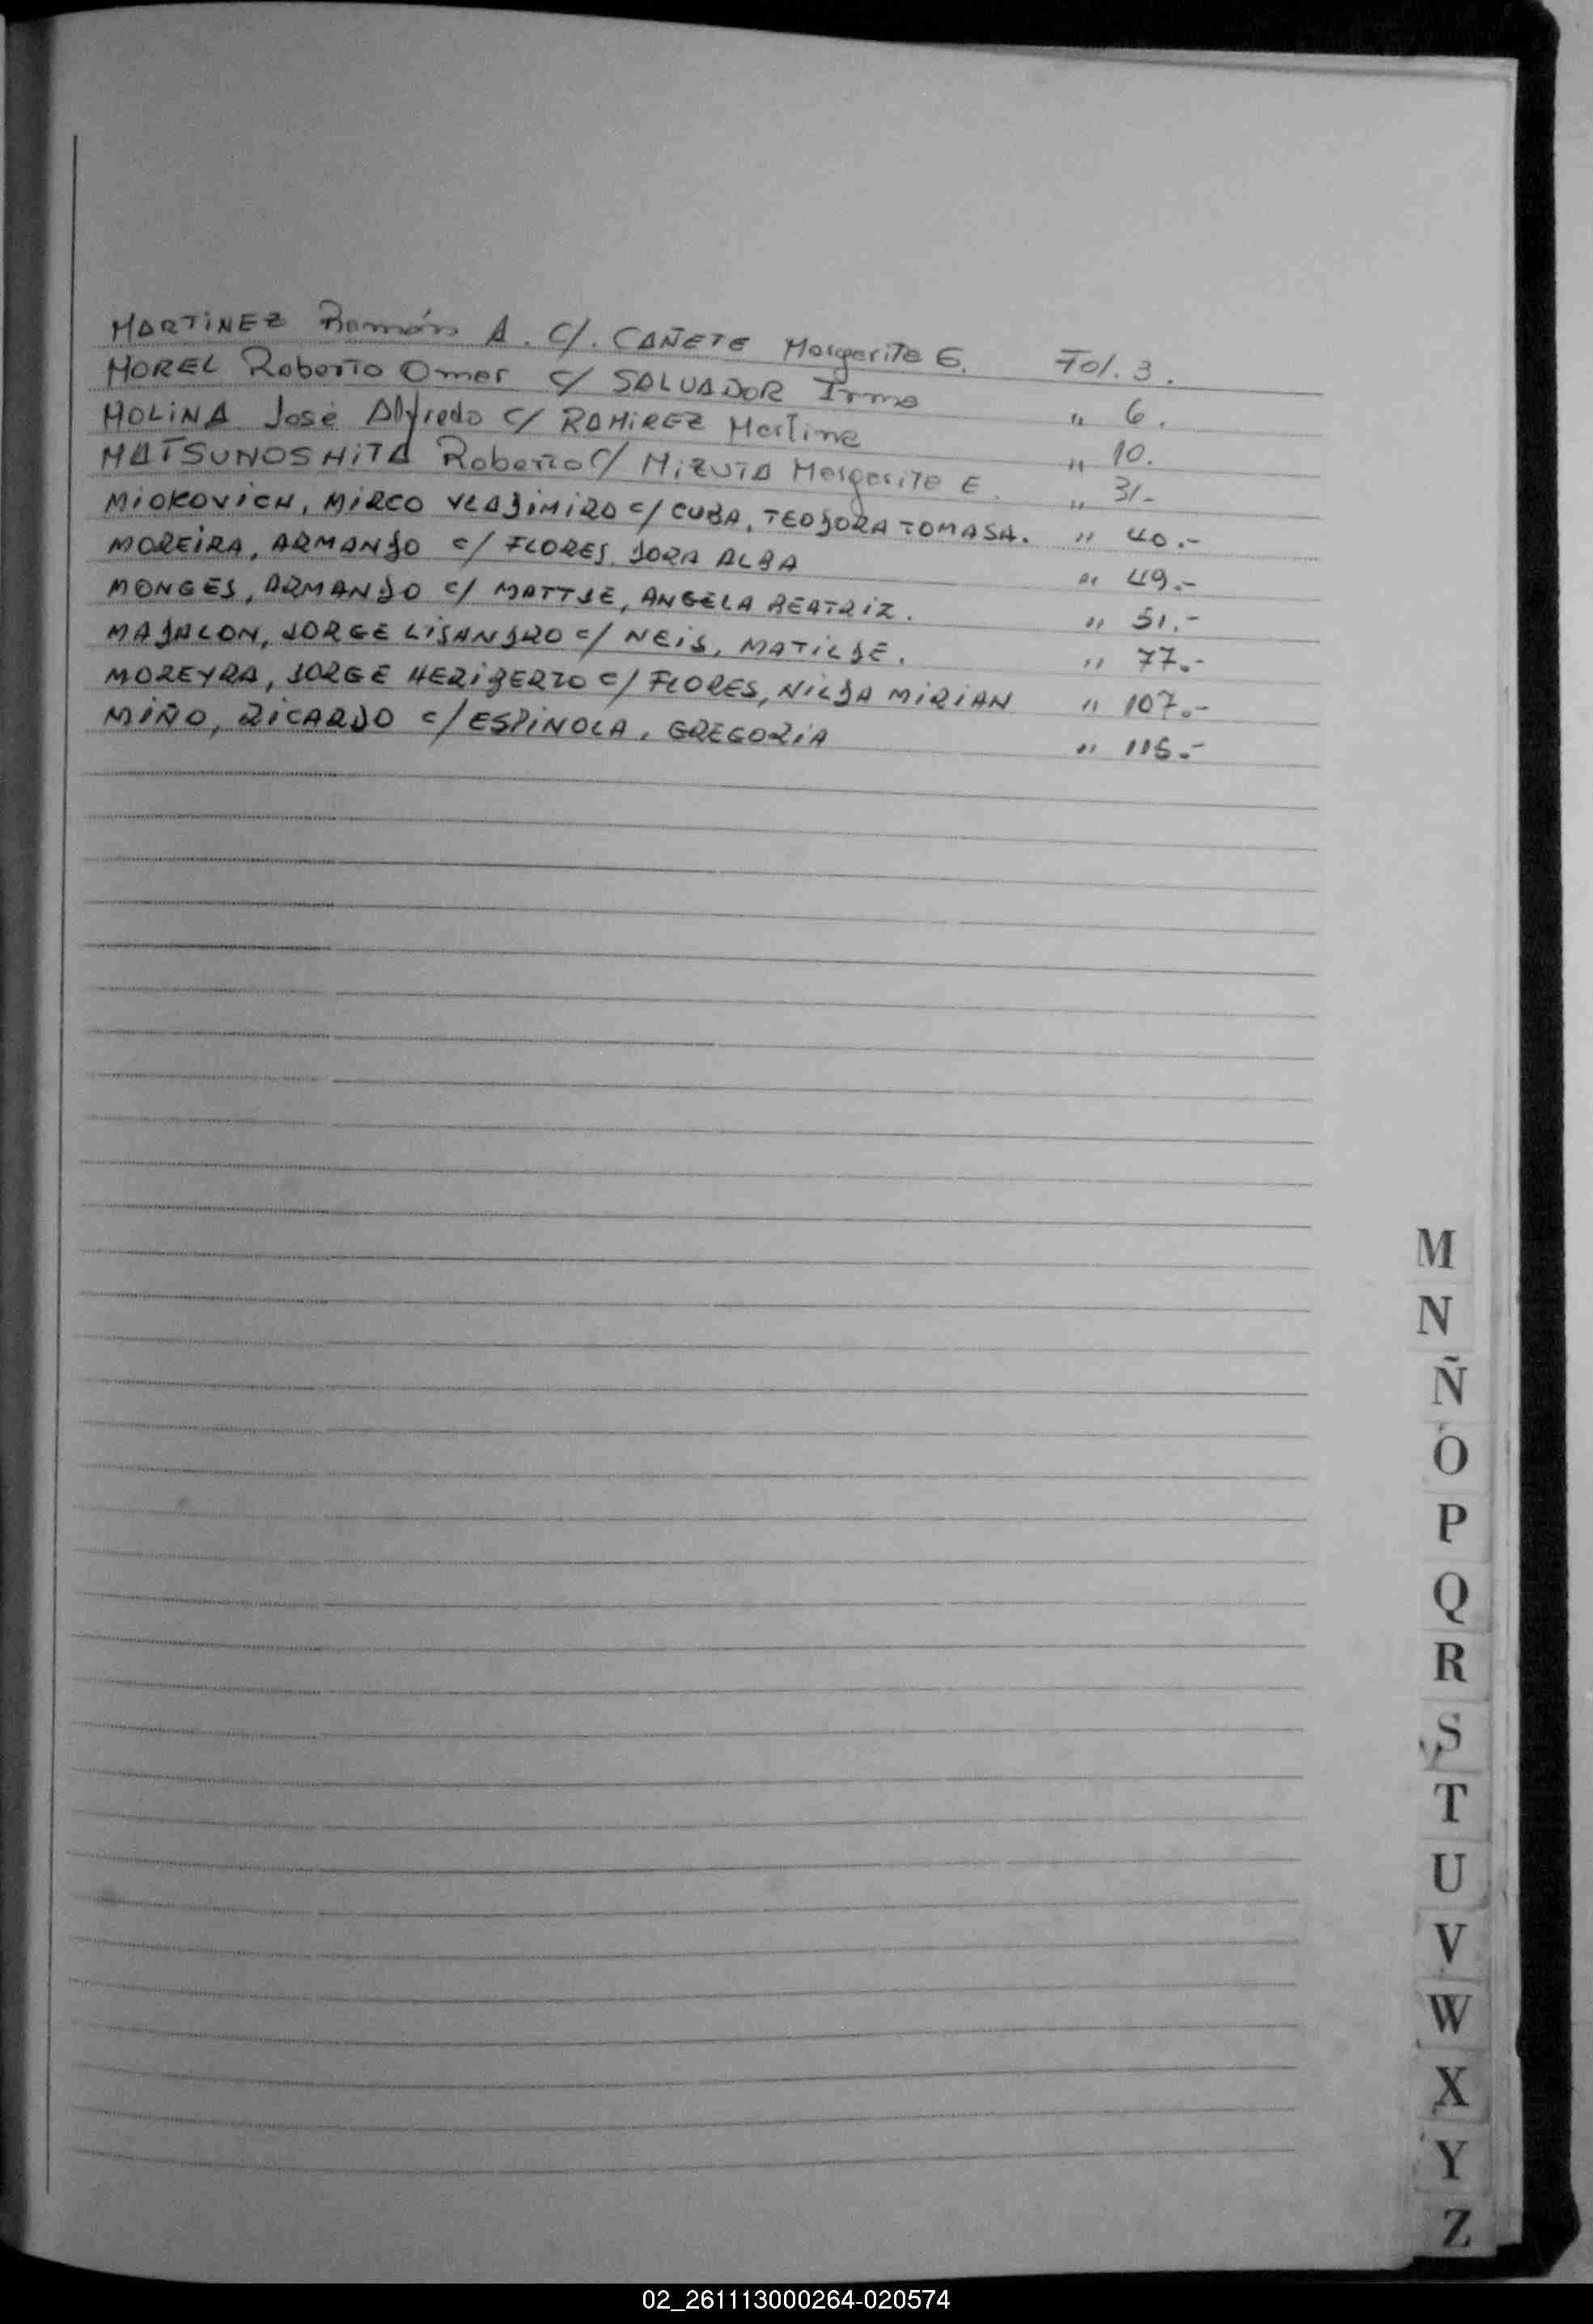 MARTINEZ Ramón A. C/. CAÑETE Margarita E. Fol. 3.
MOREL Roberto Omar C/ SALVADOR Irma " 6.
MOLINA José Alfredo C/ RAMIREZ Martina " 10.
MATSUNOSHITA Roberto C/ MIZUTA Margarita E. " 31-
MIOKOVICH, MIRCO VLADIMIRO C/ CUBA, TEODORA TOMASA. " 40.-
MOREIRA, ARMANDO C/ FLORES, DORA ALBA " 49.-
MONGES, ARMANDO C/ MATTJE, ANGELA BEATRIZ. " 51.-
MADALON, JORGE LISANDRO C/ NEIS, MATILDE. " 77.-
MOREYRA, JORGE HERIBERTO C/ FLORES, NILDA MIRIAN " 107.-
MIÑO, RICARDO C/ ESPINOLA, GREGORIA " 115.-
M
N
Ñ
O
P
Q
R
S
T
U
V
W
X
Y
Z
02_261113000264-020574